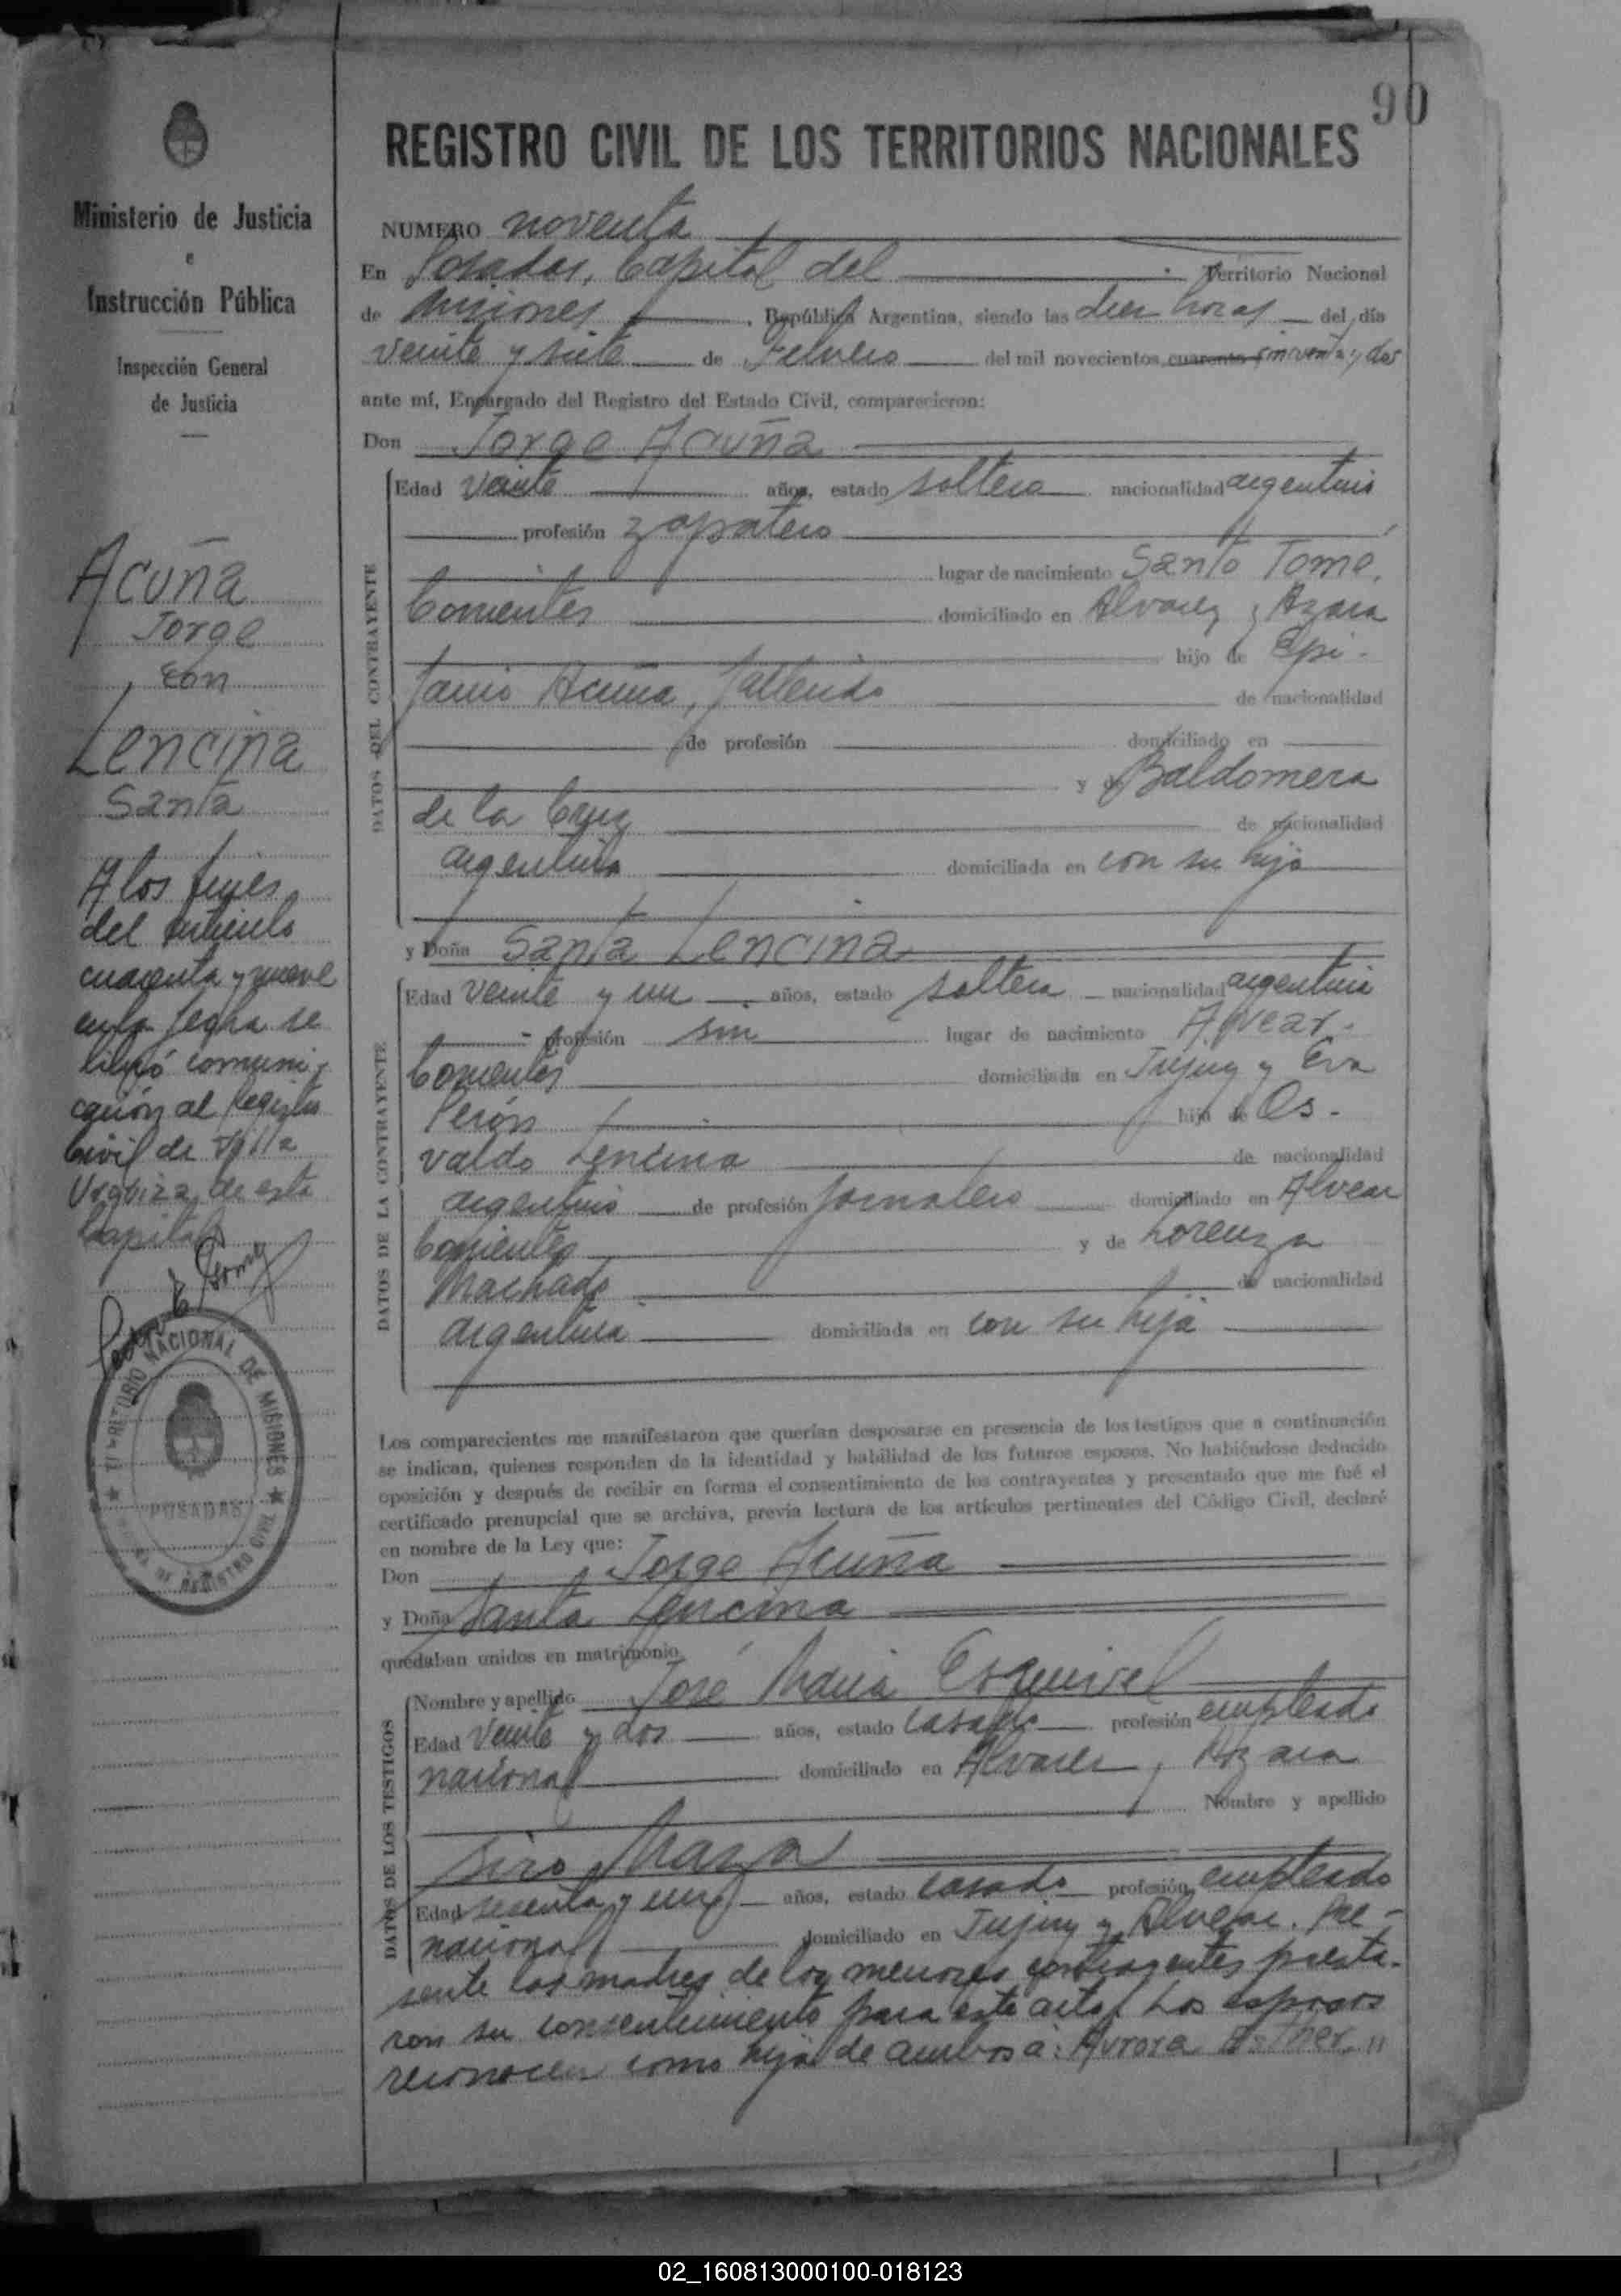 90
REGISTRO CIVIL DE LOS TERRITORIOS NACIONALES
Ministerio de Justicia
e
Instrucción Pública
Inspección General
de Justicia
Acuña
Jorge
con
Lencina
Santa
A los fines
del artículo
cuarenta y nueve
en la fecha se
libró comuni-
cación al Registro
Civil de Villa
Urquiza, de esta
Capital
TERRITORIO NACIONAL DE MISIONES
POSADAS
DE REGISTRO CIVIL
NUMERO noventa
En Posadas, Capital del Territorio Nacional
de Misiones, República Argentina, siendo las diez horas del día
veinte y siete de Febrero del mil novecientos cuarenta cincuenta y dos
ante mí, Encargado del Registro del Estado Civil, comparecieron:
Don Jorge Acuña
DATOS DEL CONTRAYENTE
Edad veinte años, estado soltero nacionalidad argentino
profesión zapatero
lugar de nacimiento Santo Tomé,
Corrientes domiciliado en Alvarez y Azara
hijo de Epi-
fanio Acuña, fallecido de nacionalidad
de profesión domiciliado en
y de Baldomera
de la Cruz de nacionalidad
argentina domiciliada en con su hijo
y Doña Santa Lencina
DATOS DE LA CONTRAYENTE
Edad veinte y un años, estado soltera nacionalidad argentina
profesión sin lugar de nacimiento Alvear.
Corrientes domiciliada en Jujuy y Eva
Perón hija de Os-
valdo Lencina de nacionalidad
argentino de profesión jornalero domiciliado en Alvear
Corrientes y de Lorenza
Machado de nacionalidad
argentina domiciliada en con su hija
Los comparecientes me manifestaron que querían desposarse en presencia de los testigos que a continuación
se indican, quienes responden de la identidad y habilidad de los futuros esposos. No habiéndose deducido
oposición y después de recibir en forma el consentimiento de los contrayentes y presentado que me fué el
certificado prenupcial que se archiva, previa lectura de los artículos pertinentes del Código Civil, declaré
en nombre de la Ley que:
Don Jorge Acuña
y Doña Santa Lencina
quedaban unidos en matrimonio.
DATOS DE LOS TESTIGOS
Nombre y apellido José Maria Esquivel
Edad veinte y dos años, estado casado profesión empleado
nacional domiciliado en Alvarez y Azara
Nombre y apellido
Siro Maza
Edad sesenta y un años, estado casado profesión empleado
nacional domiciliado en Jujuy y Alvear. Pre-
sente las madres de los menores contrayentes presta-
ron su consentimiento para este acto. Los esposos
reconocen como hija de ambos a: Aurora Esther. "
02_160813000100-018123